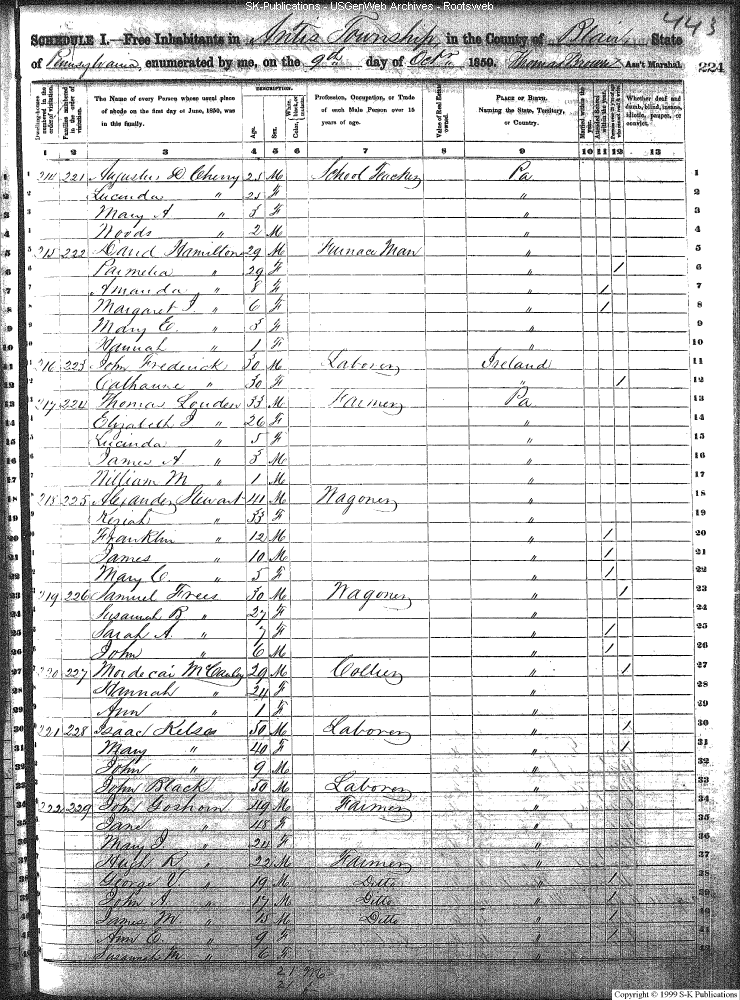 SK-Publications - USGenWeb Archives - Rootsweb
443
SCHEDULE I.—Free Inhabitants in Antis Township in the County of Blair State
of Pennsylvania enumerated by me, on the 9th day of Octr 1850. Thomas Brown Ass't Marshal. 224
Dwelling-houses numbered in the order of visitation.
Families numbered in the order of visitation.
The Name of every Person whose usual place of abode on the first day of June, 1850, was in this family.
DESCRIPTION.
Age.
Sex.
White, black, or mulatto. Color
Profession, Occupation, or Trade of each Male Person over 15 years of age.
Value of Real Estate owned.
PLACE OF BIRTH. Naming the State, Territory, or Country.
Married within the year.
Attended School within the year.
Persons over 20 y'rs of age who cannot read & write.
Whether deaf and dumb, blind, insane, idiotic, pauper, or convict.
1 2 3 4 5 6 7 8 9 10 11 12 13
1 214 221 Augustus D Cherry 25 M School Teacher Pa 1
2 Lucinda " 25 F " 2
3 Mary A " 3 F " 3
4 Woods " 2 M " 4
5 215 222 David Hamilton 29 M Furnace Man " 5
6 Parmelia " 29 F " / 6
7 Amanda " 8 F " / 7
8 Margaret J. " 6 F " / 8
9 Mary E " 3 F " 9
10 Hannah " 1 F " 10
11 216 223 John Frederick 30 M Laborer Ireland 11
12 Catharine " 30 F " / 12
13 217 224 Thomas Louden 33 M Farmer Pa 13
14 Elizabeth J " 26 F " 14
15 Lucinda " 5 F " 15
16 James A " 3 M " 16
17 William M " 1 M " 17
18 218 225 Alexander Stewart 41 M Wagoner " 18
19 Keziah " 33 F " 19
20 Franklin " 12 M " / 20
21 James " 10 M " / 21
22 Mary C " 5 F " / 22
23 219 226 Samuel Frees 30 M Wagoner " / 23
24 Susannah B " 27 F " 24
25 Sarah A. " 7 F " / 25
26 John " 6 M " / 26
27 220 227 Mordecai McCauley 29 M Collier " / 27
28 Hannah " 24 F " 28
29 Ann " 1 F " 29
30 221 228 Isaac Kelso 50 M Laborer " / 30
31 Mary " 40 F " / 31
32 John " 9 M " 32
33 John Black 50 M Laborer " 33
34 222 229 John Goshorn 49 M Farmer " 34
35 Jane " 48 F " 35
36 Mary J " 24 F " 36
37 Hugh R " 22 M Farmer " 37
38 George V " 19 M Ditto " / 38
39 John A. " 17 M Ditto " / 39
40 James M " 15 M Ditto " / 40
41 Ann E. " 9 F " / 41
42 Susannah M " 6 F " 42
21 M
21 F
Copyright © 1999 S-K Publications